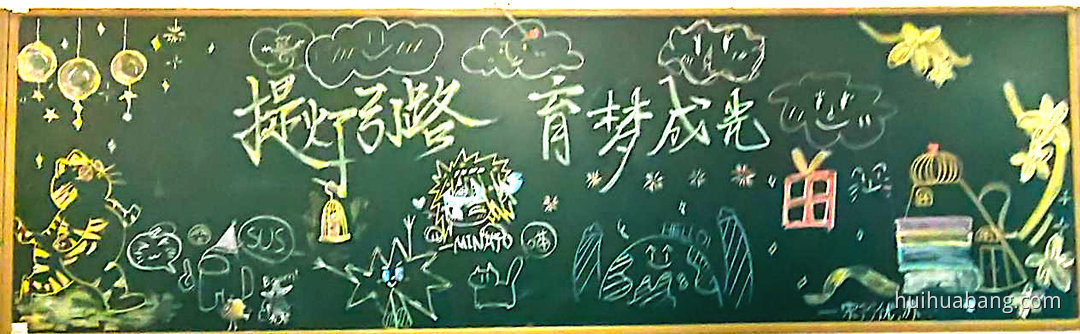 提灯引路 育梦成光
SUS
MINATO
喵
HELLO!
huihuabang.com